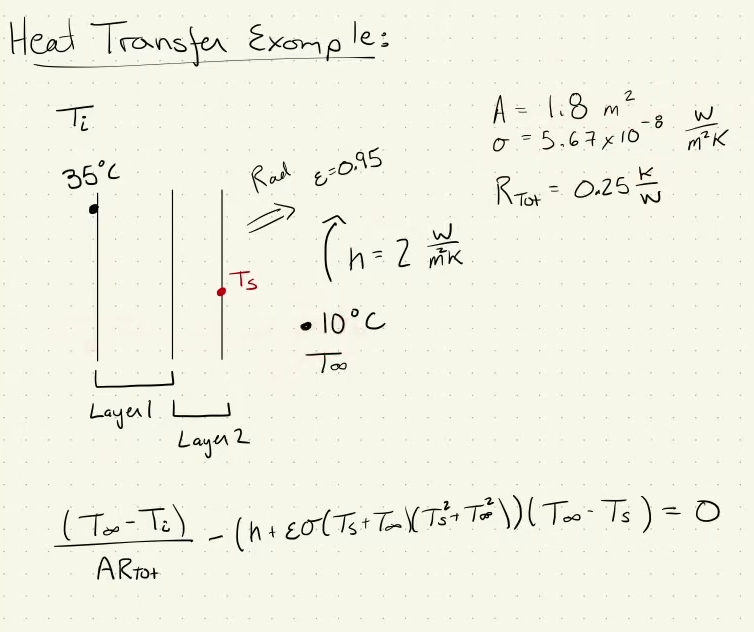 Heat Transfer Example:
T_i
35°C
Rad ε=0.95
h = 2 W/m²K
T_s
• 10°C
T_∞
Layer 1
Layer 2
A = 1.8 m²
σ = 5.67 x 10⁻⁸ W/m²K
R_Tot = 0.25 K/W
(T_∞ - T_i)/AR_Tot - (h + εσ(T_s + T_∞)(T_s² + T_∞²))(T_∞ - T_s) = 0